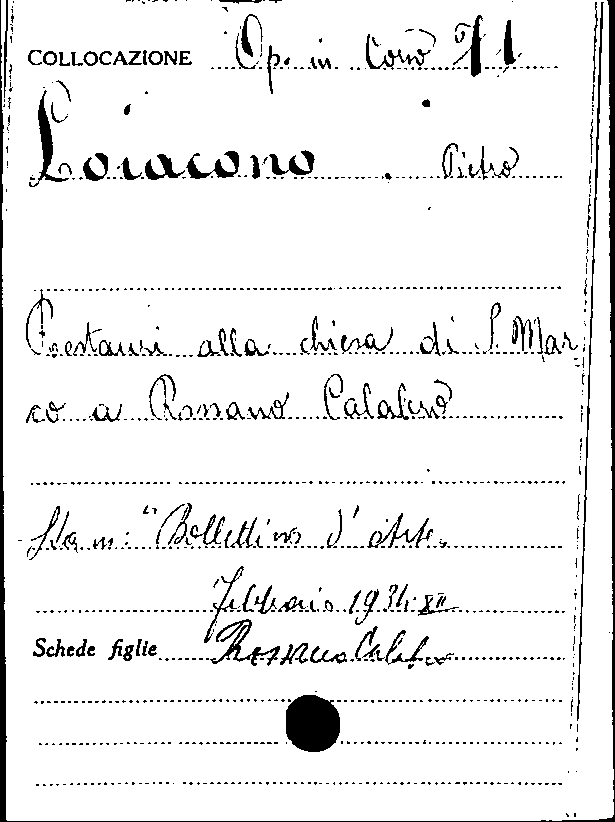 COLLOCAZIONE Op. in Corso
Loiacono. Pietro
Restauri alla chiesa di S. Mar
co a Rossano Calabro
Sta in: "Bollettino d'Arte.
Febbraio 1934-XII
Schede figlie Rossano Calabro